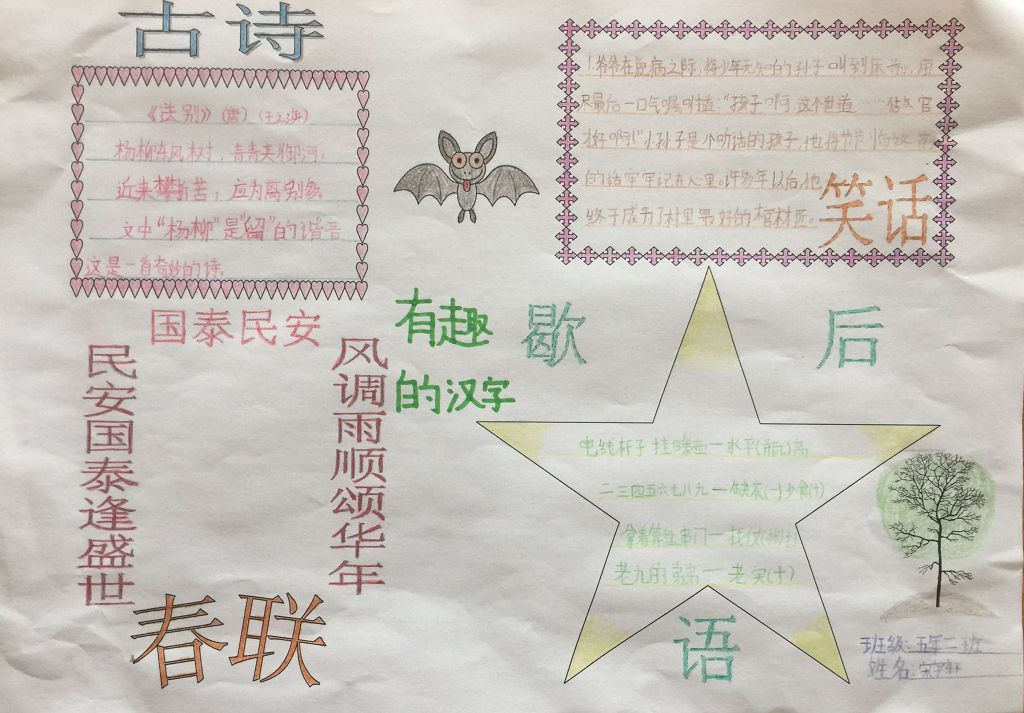 古诗
《送别》(唐)(王之涣)
杨柳东风树,青青夹御河。
近来攀折苦,应为离别多。
文中“杨柳”是“留”的谐音
这是一首奇妙的诗。
爷爷在重病之际,将少年无知的孙子叫到床前,用
尽最后一口气嘱咐道:“孩子啊 这个世道……
好啊!”小孙子是个听话的孩子,他将爷爷临终前
的话牢牢记在心里。许多年以后,他
终于成为了村里最好的棺材匠。
笑话
国泰民安
民安国泰逢盛世
风调雨顺颂华年
春联
有趣
的汉字
歇
后
语
电线杆子挂暖壶—水平(瓶)高
二三四五六七八九—缺衣(一)少食(十)
老九的弟弟—老实(十)
班级:五年二班
姓名: